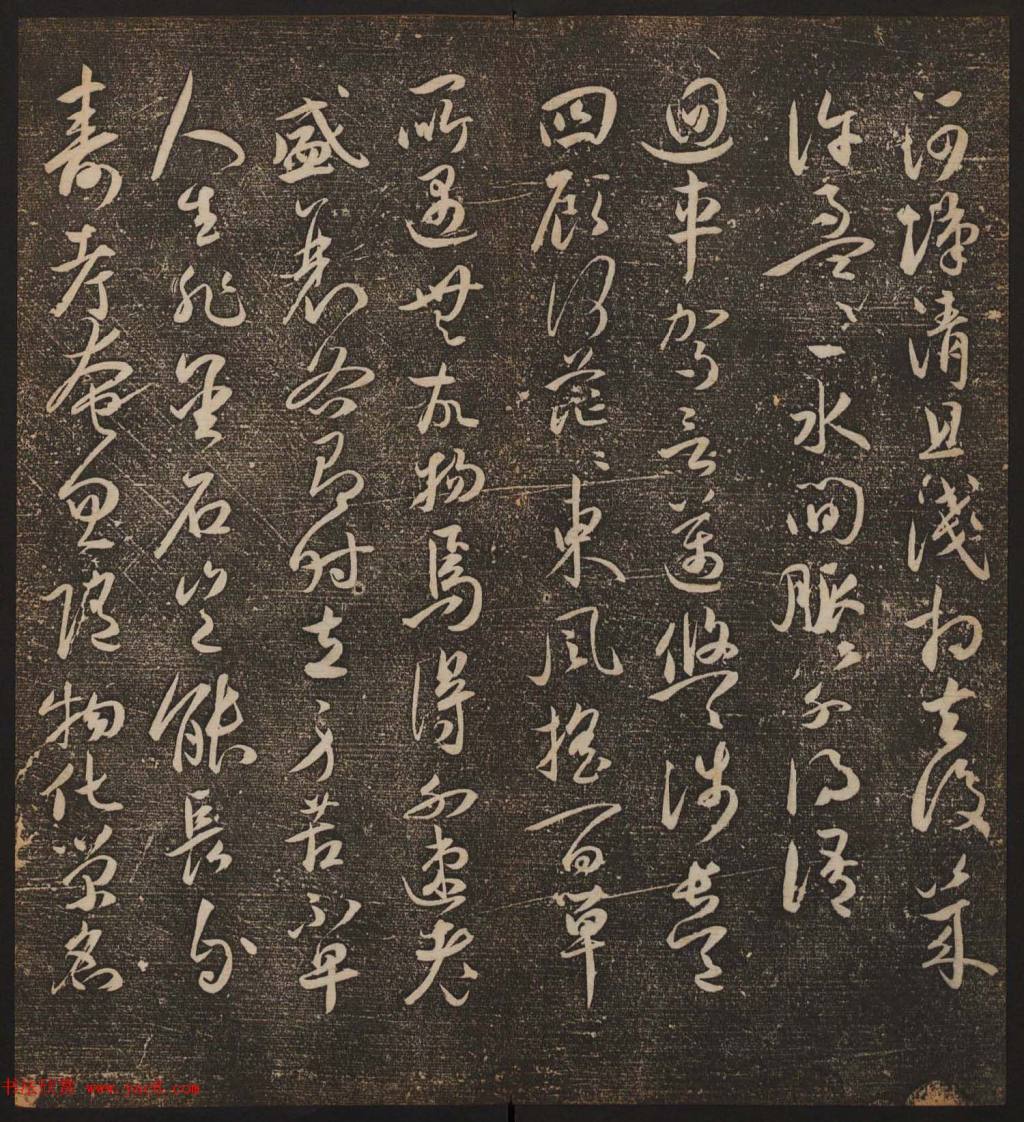 河漢清且淺相去復幾
許盈〻一水間脈〻不得語
迴車駕言邁悠〻涉長道
四顧何茫〻東風搖百草
所遇無故物焉得不速老
盛衰各有時立身苦不早
人生非金石豈能長
壽考奄忽隨物化榮名
书法欣赏 www.yac8.com